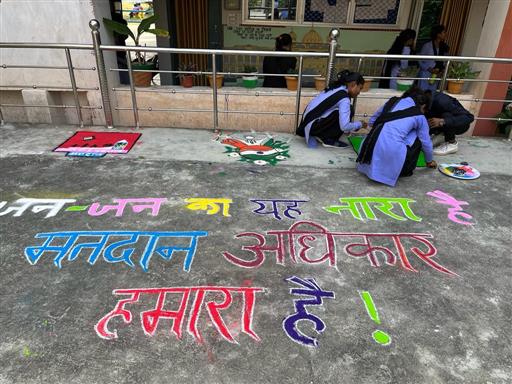 जन-जन का यह नारा है
मतदान अधिकार
हमारा है !